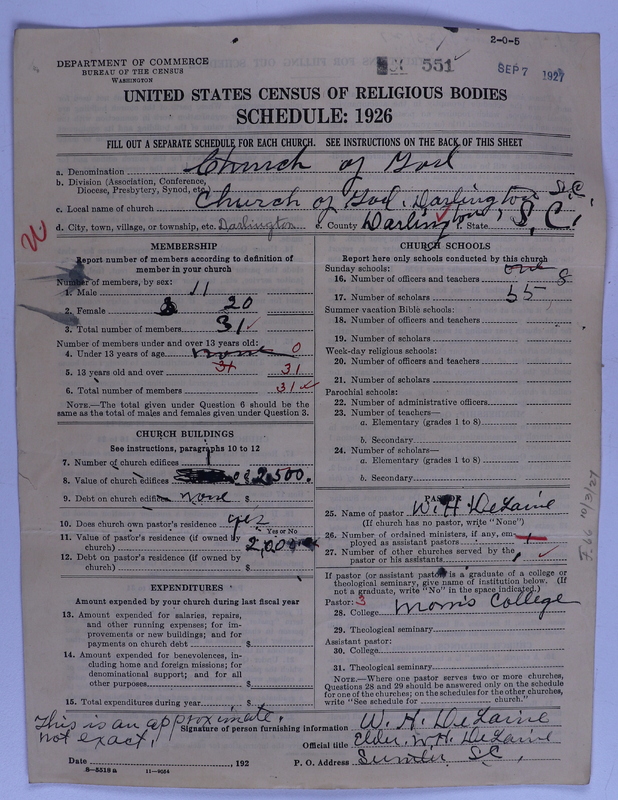 2-0-5
DEPARTMENT OF COMMERCE
BUREAU OF THE CENSUS
WASHINGTON
551
SEP 7 1927
UNITED STATES CENSUS OF RELIGIOUS BODIES
SCHEDULE: 1926
FILL OUT A SEPARATE SCHEDULE FOR EACH CHURCH. SEE INSTRUCTIONS ON THE BACK OF THIS SHEET
a. Denomination Church of God
b. Division (Association, Conference, Diocese, Presbytery, Synod, etc.)
c. Local name of church Church of God. Darlington S.C.
d. City, town, village, or township, etc. Darlington e. County Darlington, f. State S.C.
MEMBERSHIP
Report number of members according to definition of member in your church
Number of members, by sex:
1. Male 11
2. Female 20
3. Total number of members 31
Number of members under and over 13 years old:
4. Under 13 years of age none 0
5. 13 years old and over 31 31
6. Total number of members 31
NOTE.—The total given under Question 6 should be the same as the total of males and females given under Question 3.
CHURCH BUILDINGS
See instructions, paragraphs 10 to 12
7. Number of church edifices 1
8. Value of church edifices $ 2,500.
9. Debt on church edifices none $
10. Does church own pastor's residence yes
Yes or No
11. Value of pastor's residence (if owned by church) 2,00
12. Debt on pastor's residence (if owned by church) $
EXPENDITURES
Amount expended by your church during last fiscal year
13. Amount expended for salaries, repairs, and other running expenses; for improvements or new buildings; and for payments on church debt $
14. Amount expended for benevolences, including home and foreign missions; for denominational support; and for all other purposes $
15. Total expenditures during year $
CHURCH SCHOOLS
Report here only schools conducted by this church
Sunday schools: one
16. Number of officers and teachers 8
17. Number of scholars 55
Summer vacation Bible schools:
18. Number of officers and teachers
19. Number of scholars
Week-day religious schools:
20. Number of officers and teachers
21. Number of scholars
Parochial schools:
22. Number of administrative officers
23. Number of teachers—
a. Elementary (grades 1 to 8)
b. Secondary
24. Number of scholars—
a. Elementary (grades 1 to 8)
b. Secondary
PASTOR
25. Name of pastor W. H. DeLaine
(If church has no pastor, write "None")
26. Number of ordained ministers, if any, employed as assistant pastors
27. Number of other churches served by the pastor or his assistants
If pastor (or assistant pastor) is a graduate of a college or theological seminary, give name of institution below. (If not a graduate, write "No" in the space indicated.)
Pastor: 3
28. College Morris College
29. Theological seminary
Assistant pastor:
30. College
31. Theological seminary
NOTE.—Where one pastor serves two or more churches, Questions 28 and 29 should be answered only on the schedule for one of the churches; on the schedules for the other churches, write "See schedule for church."
This is an approximate.
not exact.
Signature of person furnishing information W. H. DeLaine
Official title Elder. W. H. DeLaine
Date , 192 P. O. Address Sumter S.C.
8-5518 a 11-9054